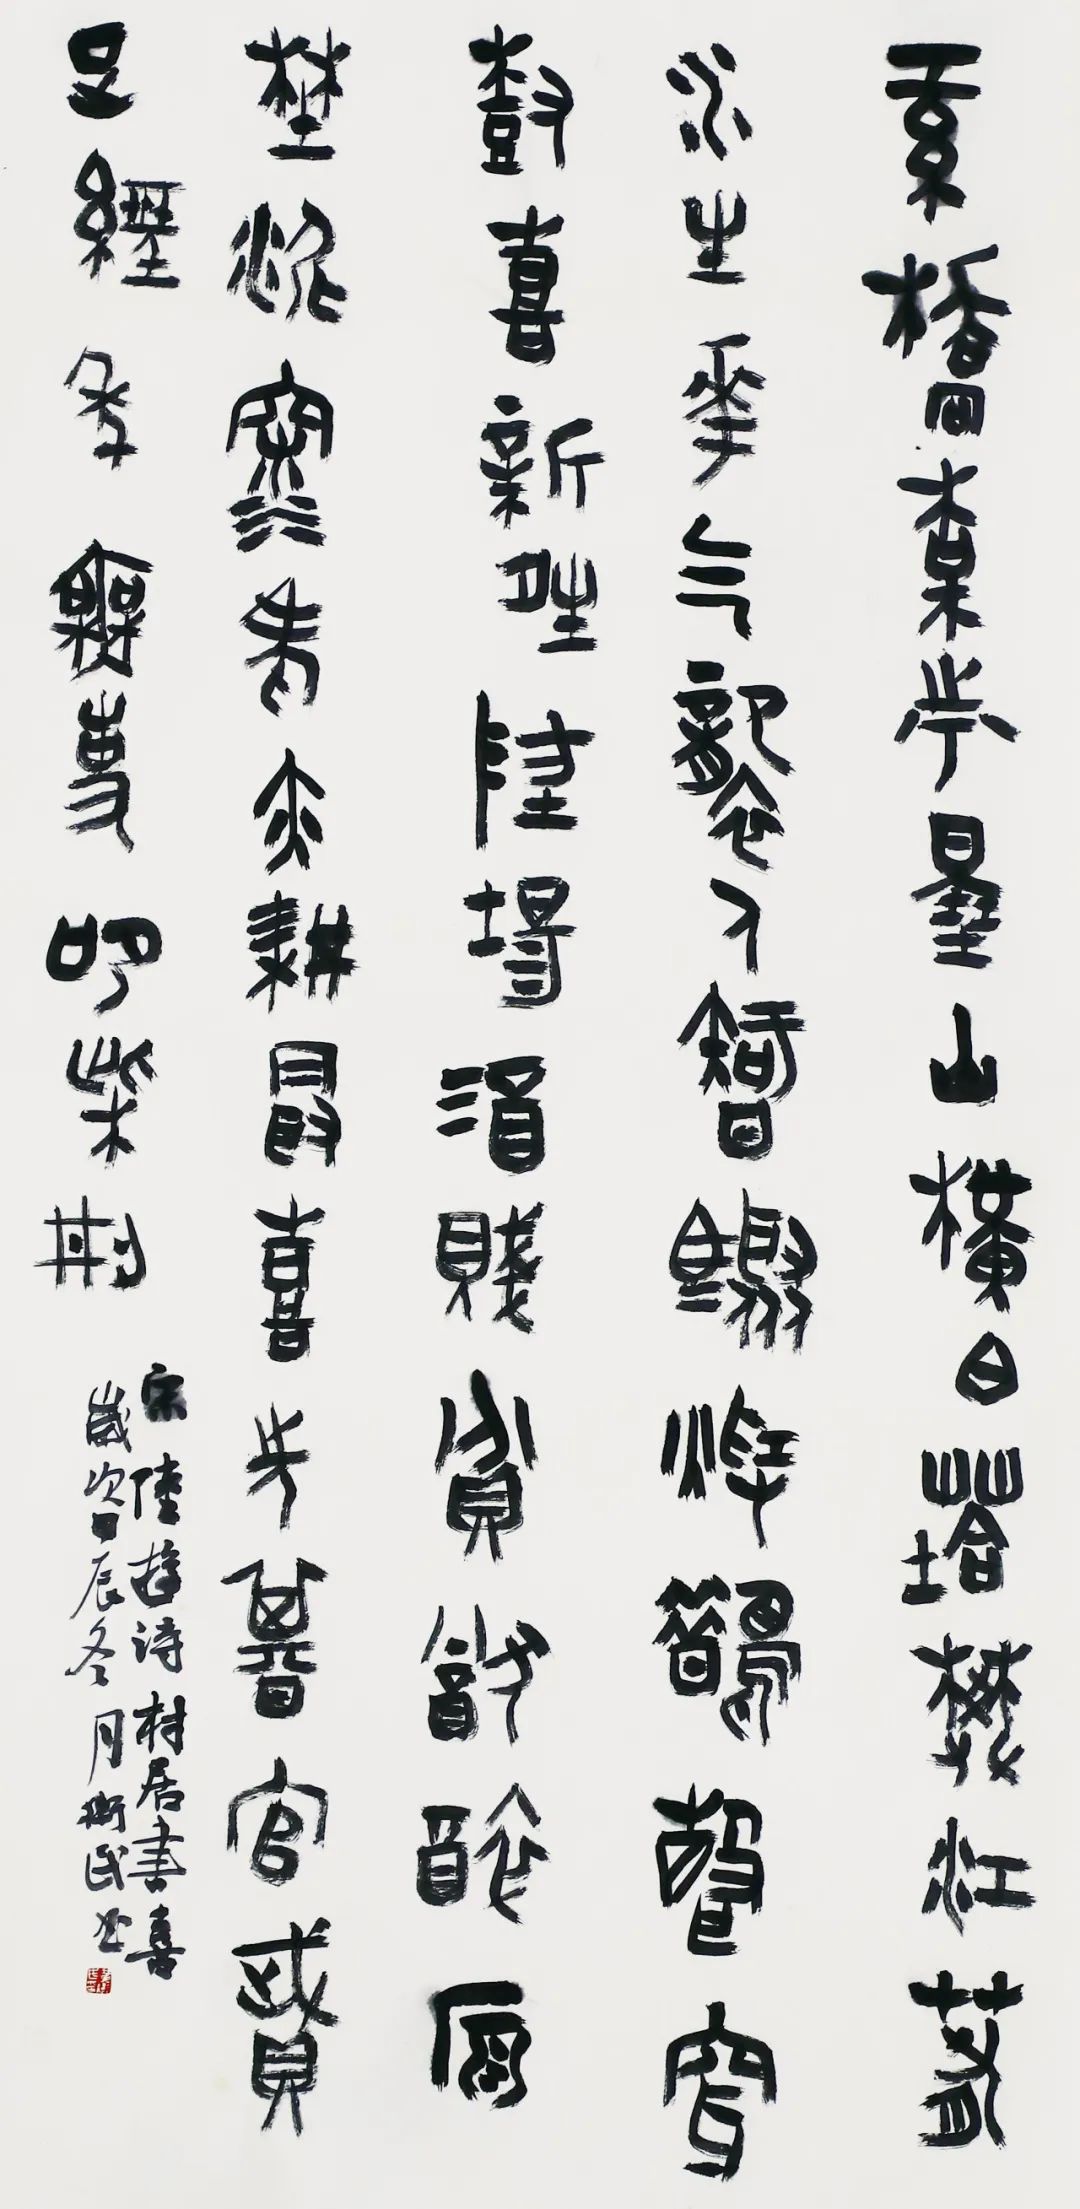 紅橋梅市曉山橫白塔樊江萅
水生華气襲人智驟煖鵲聲穿
尌喜新晴陸場酒賤貧猷醉原
埜泥深老亦耕最喜步朞官賦
足經年無吏叩柴荆
宋陸游詩村居書喜
歲次甲辰冬月衛民書